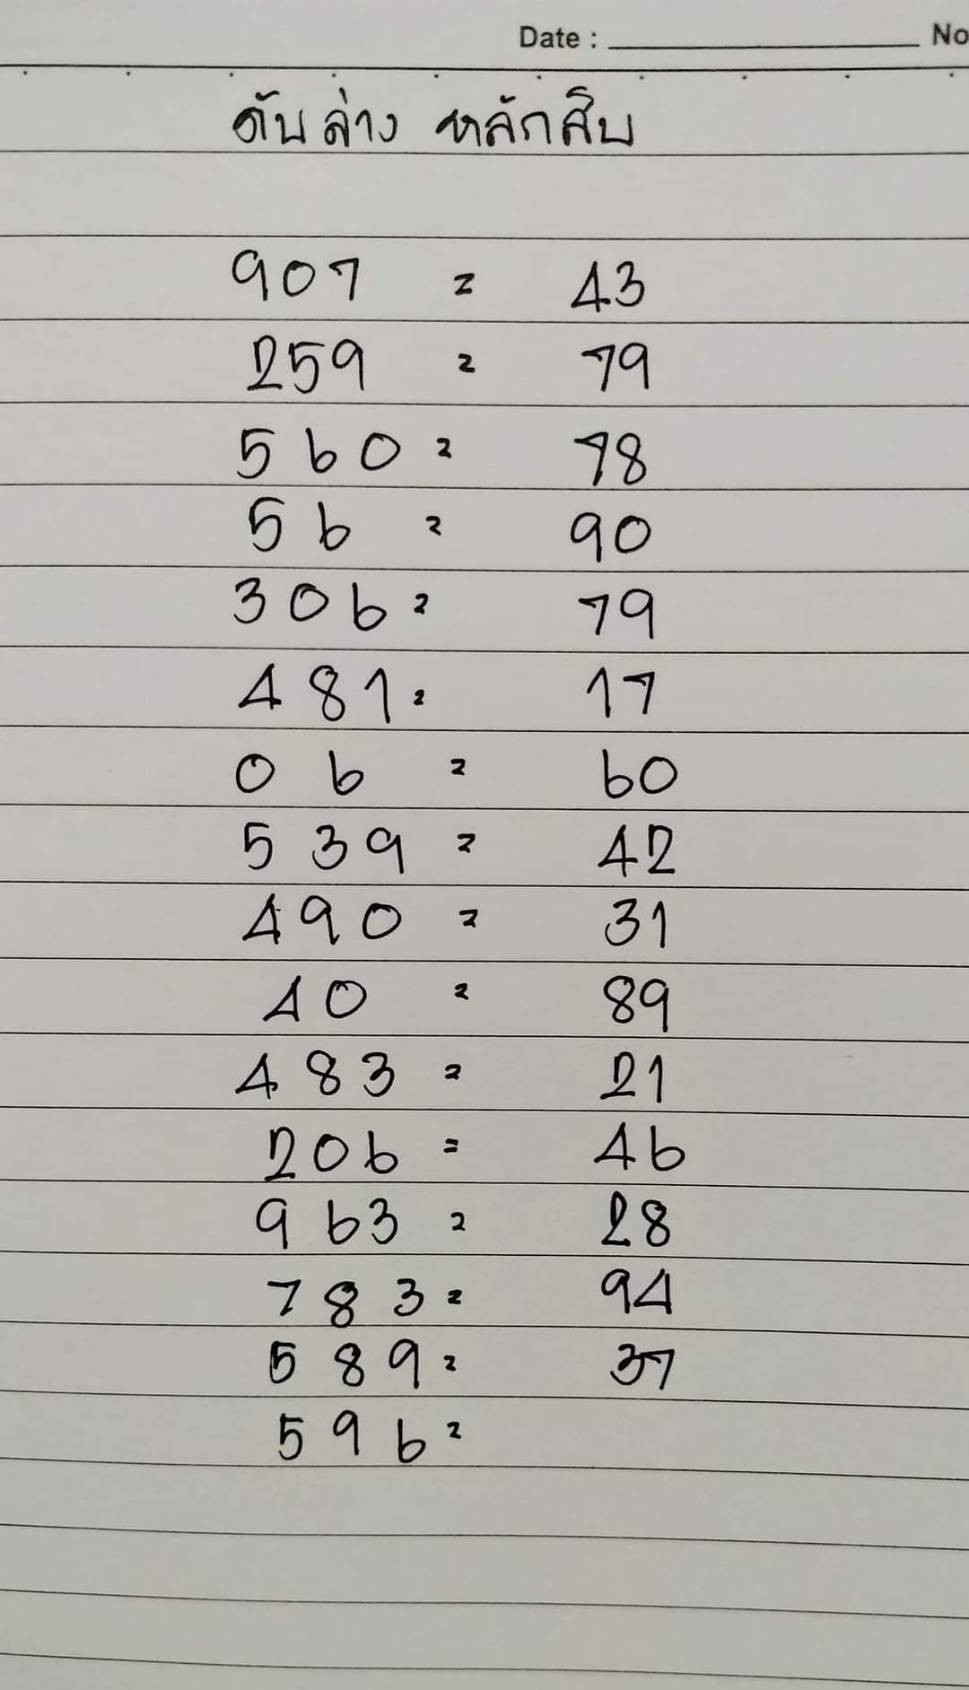 Date : No
ดับล่าง หลักสิบ
907 = 43
259 = 79
560 = 78
56 = 90
306 = 79
481 = 17
06 = 60
539 = 42
490 = 31
40 = 89
483 = 21
206 = 46
963 = 28
783 = 94
589 = 37
596 =